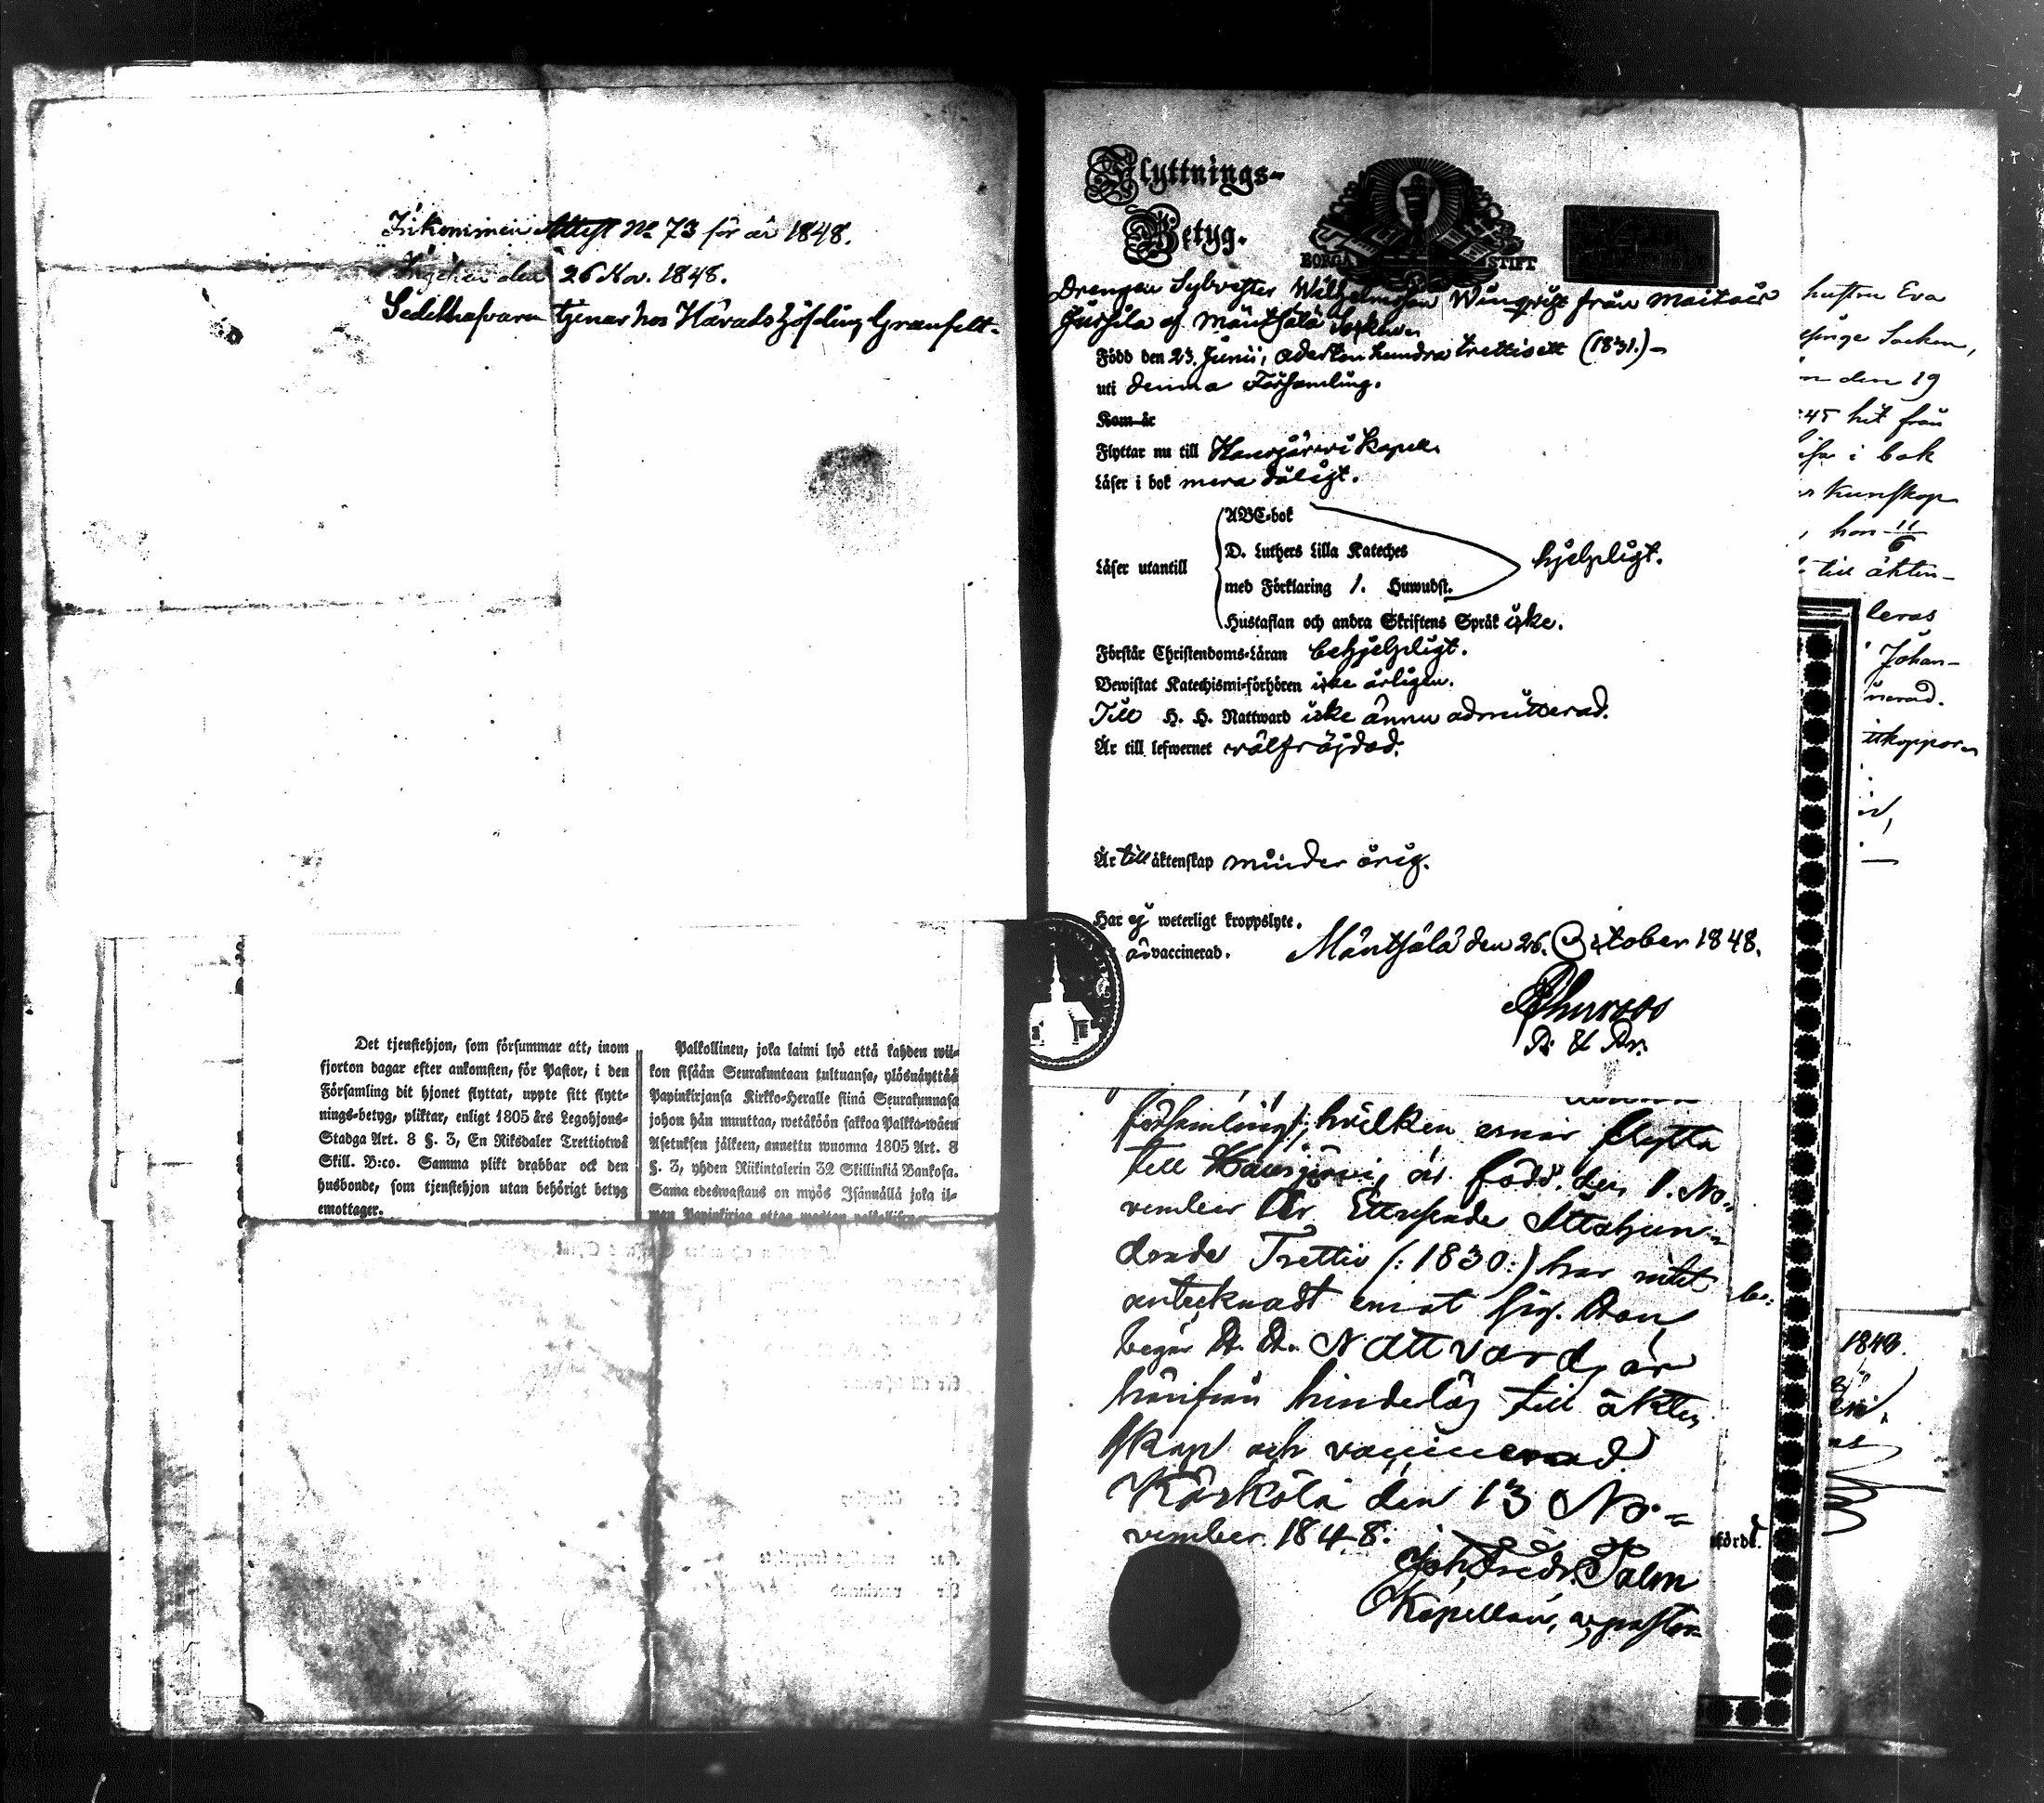 Inkommen Attest No 73 för år 1848.
den 26 Nov. 1848.
Sedelhafvaren tjenar hos Häradshöfding Granfelt.
Det tjenstehjon, som försummar att, inom
fjorton dagar efter ankomsten, för Pastor, i den
Församling dit hjonet flyttat, uppte sitt flytt-
nings-betyg, pliktar, enligt 1805 års Legohjons-
Stadga Art. 8 §. 3, En Riksdaler Trettiotwå
Skill. B:co. Samma plikt drabbar ock den
husbonde, som tjenstehjon utan behörigt betyg
emottager.
Palkollinen, joka laimi lyö että kahden wii-
kon sisään Seurakuntaan tultuansa, ylösnäyttää
Papinkirjansa Kirkko-Heralle siinä Seurakunnasa
johon hän muuttaa, wetäköön sakkoa Palkka-wäen
Asetuksen jälkeen, annettu wuonna 1805 Art. 8
§. 3, yhden Riikintalerin 32 Skillinkiä Bankosa.
Sama edeswastaus on myös Isännällä joka il-
man Papinkirjaa ottaa
Flyttnings-
Betyg.
BORGÅ STIFT
Drengen Sylvester Wilhelmsson Winqvist från
af Mäntsälä Socken
Född den 23. Junii, aderton hundra trettiett (1831.)
uti denna Församling.
Kom år
Flyttar nu till Hausjärvi Kapell
Läser i bok mera dåligt.
ABC-bok
D. Luthers Lilla Kateches
Läser utantill
hjelpligt.
med Förklaring 1. Huwudst.
Hustaflan och andra Skriftens Språk icke.
Förstår Christendoms-Läran behjelpligt.
Bewistat Katechismi-förhören icke årligen.
Till H. H. Nattward icke ännu admitterad.
Är till lefwernet välfräjdad.
Är till äktenskap minder årig.
Har ej weterligt kroppslyte.
är vaccinerad.
Mäntsälä den 26. October 1848.
församling, hvilken ernår flytta
till Hausjärvi, är född den 1. No-
vember År Ettusende Åttahun-
drade Trettio (: 1830:) har intet
antecknadt emot sig. Han
begår H. H. Nattvard, är
härifrån hinderlös till äkten
skap och vaccinerad
Kärkölä den 13 No-
vember 1848:
Joh. Fredr. Palm
Kapellan,
hustru Eva
Socken,
den 19
45 hit från
i bok
kunskap
hon 11
6
till äkten-
Johan-
1848.